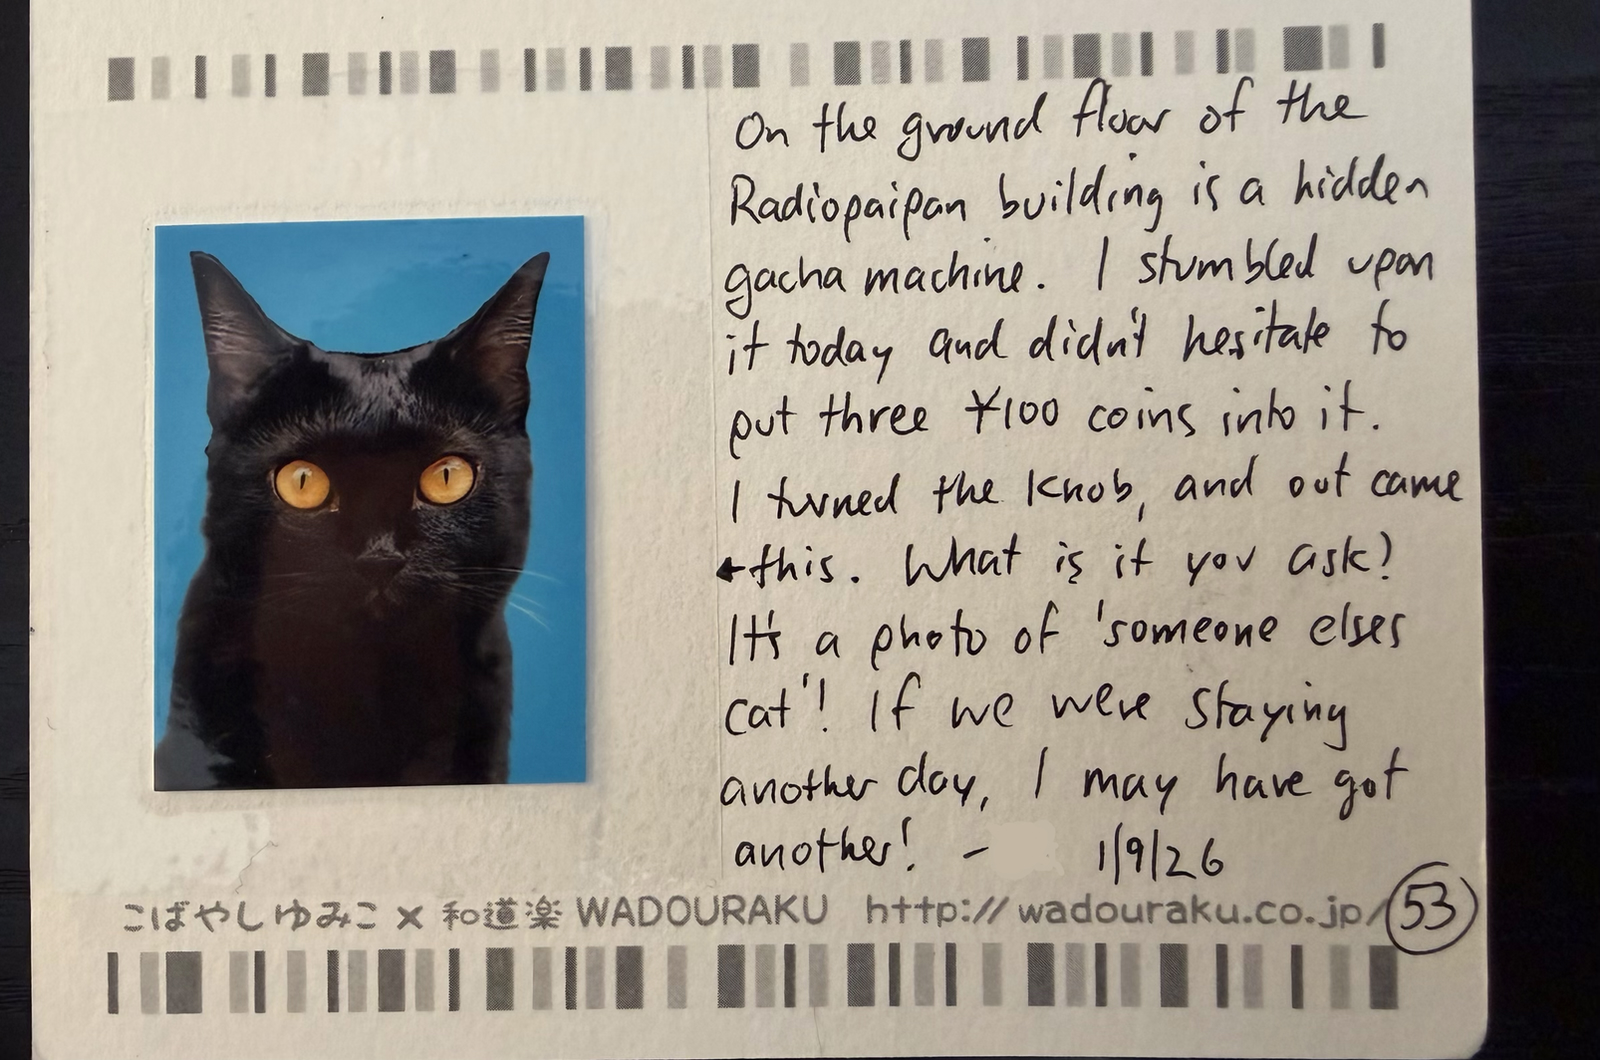 On the ground floor of the
Radiopaipan building is a hidden
gacha machine. I stumbled upon
it today and didn't hesitate to
put three ¥100 coins into it.
I turned the knob, and out came
←this. What is it you ask?
It's a photo of 'someone elses
cat'! If we were staying
another day, I may have got
another! – 1/9/26
こばやしゆみこ × 和道楽 WADOURAKU http://wadouraku.co.jp/
53